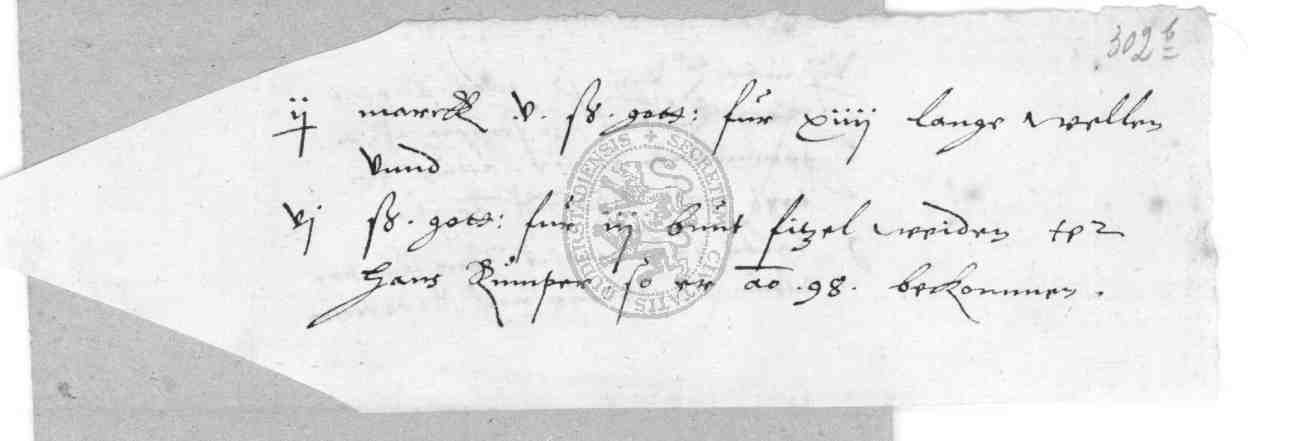 302 b
ij marck .v. ß. gott: für xiiij lange wellen
vnnd
vj ß. gott: für iij bunt fitzel weiden
Hans Kümper so er ao .98. bekommen.
SECRETUM CIVITATIS DUDERSTADIENSIS